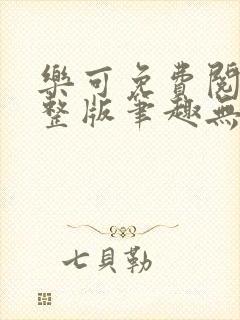 樂可免費閱
整版筆趣無
七貝勒